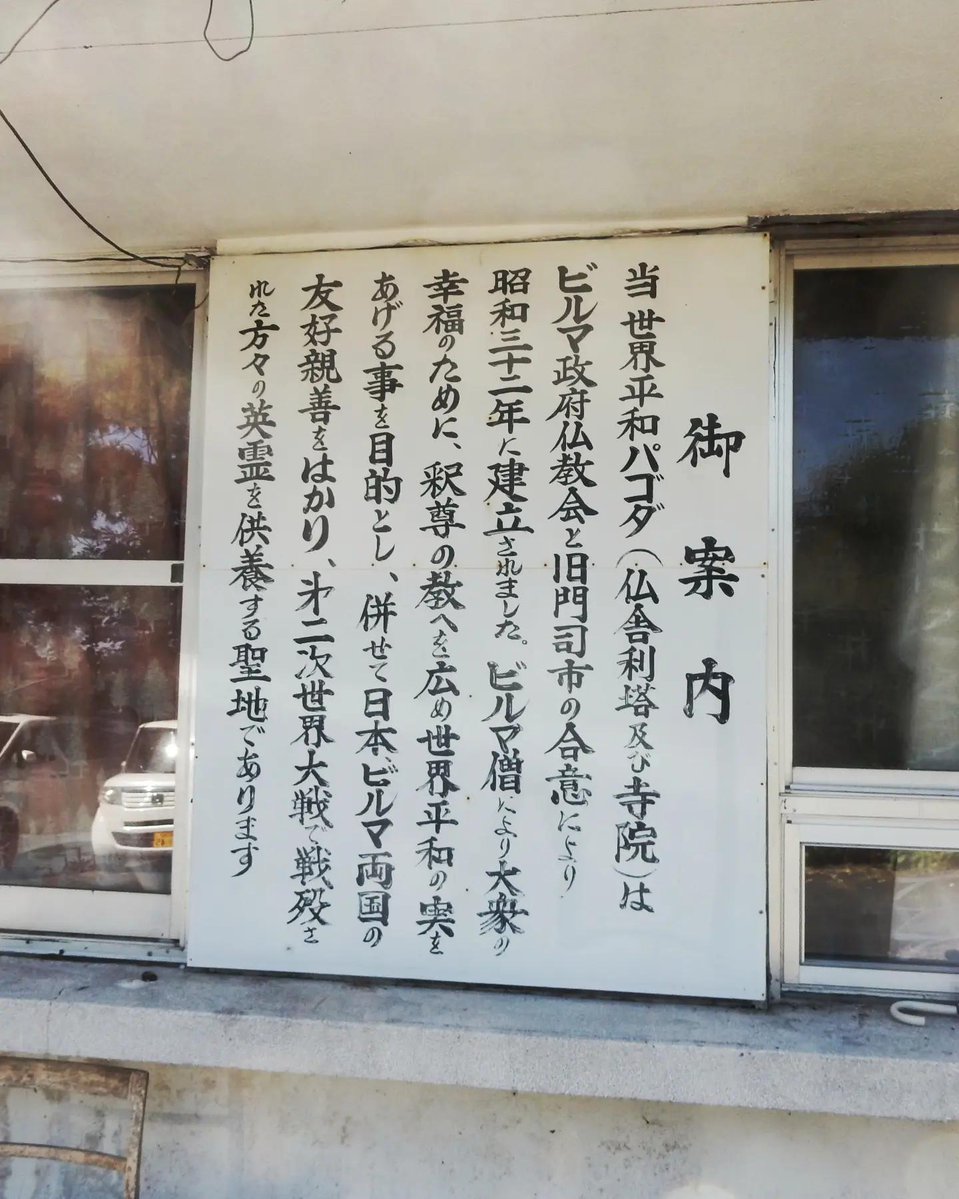 御案内
当世界平和パゴダ(仏舎利塔及び寺院)は
ビルマ政府仏教会と旧門司市の合意により
昭和三十二年に建立されました。ビルマ僧により大衆の
幸福のために、釈尊の教へを広め世界平和の実を
あげる事を目的とし、併せて日本、ビルマ両国の
友好親善をはかり、㐧二次世界大戦で戦殁さ
れた方々の英霊を供養する聖地であります